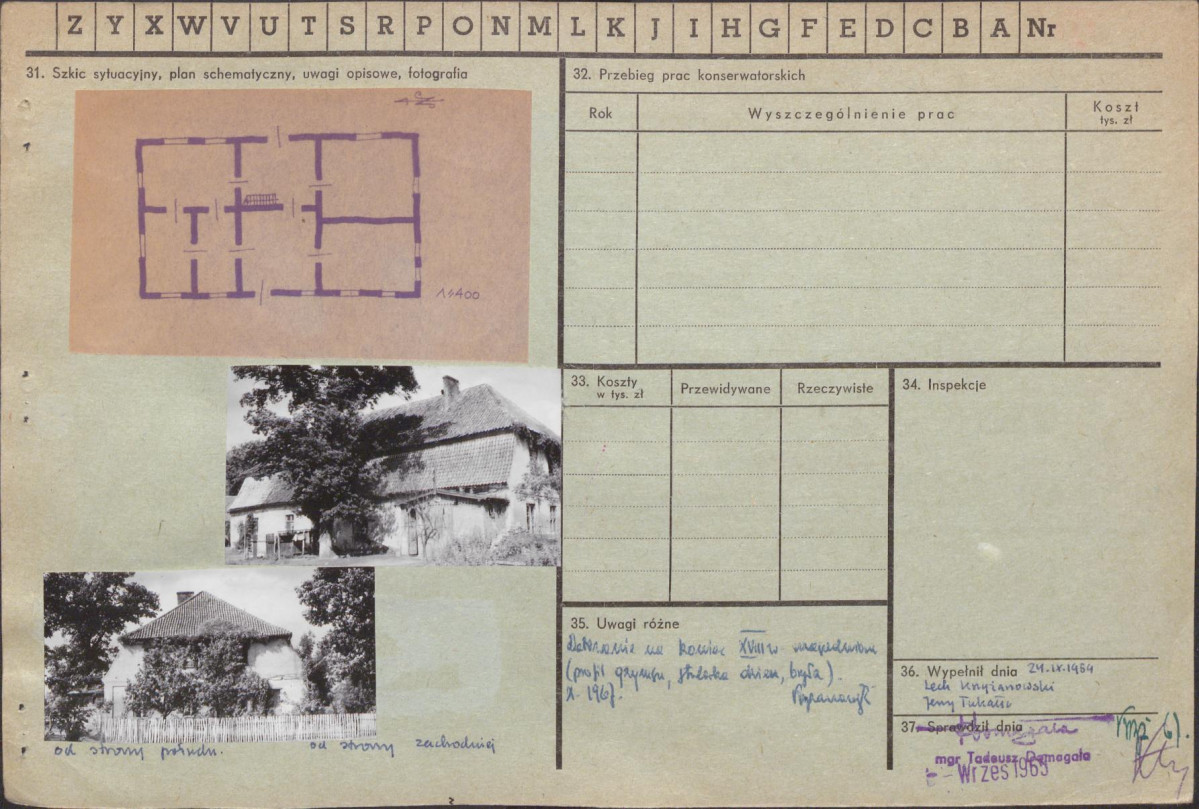 Z Y X W V U T S R P O N M L K J I H G F E D C B A Nr
31. Szkic sytuacyjny, plan schematyczny, uwagi opisowe, fotografia
1:400
od strony połudn.
od strony zachodniej
32. Przebieg prac konserwatorskich
Rok
Wyszczególnienie prac
Koszt
tys. zł
33. Koszty
w tys. zł
Przewidywane
Rzeczywiste
34. Inspekcje
35. Uwagi różne
na koniec XVIII w
(profil gzymsu, stolarka drzwi, bryła).
X. 1967.
36. Wypełnił dnia 24.IX.1959
Lech Krzyżanowski
Jerzy
37. Sprawdził dnia
mgr Tadeusz Domagała